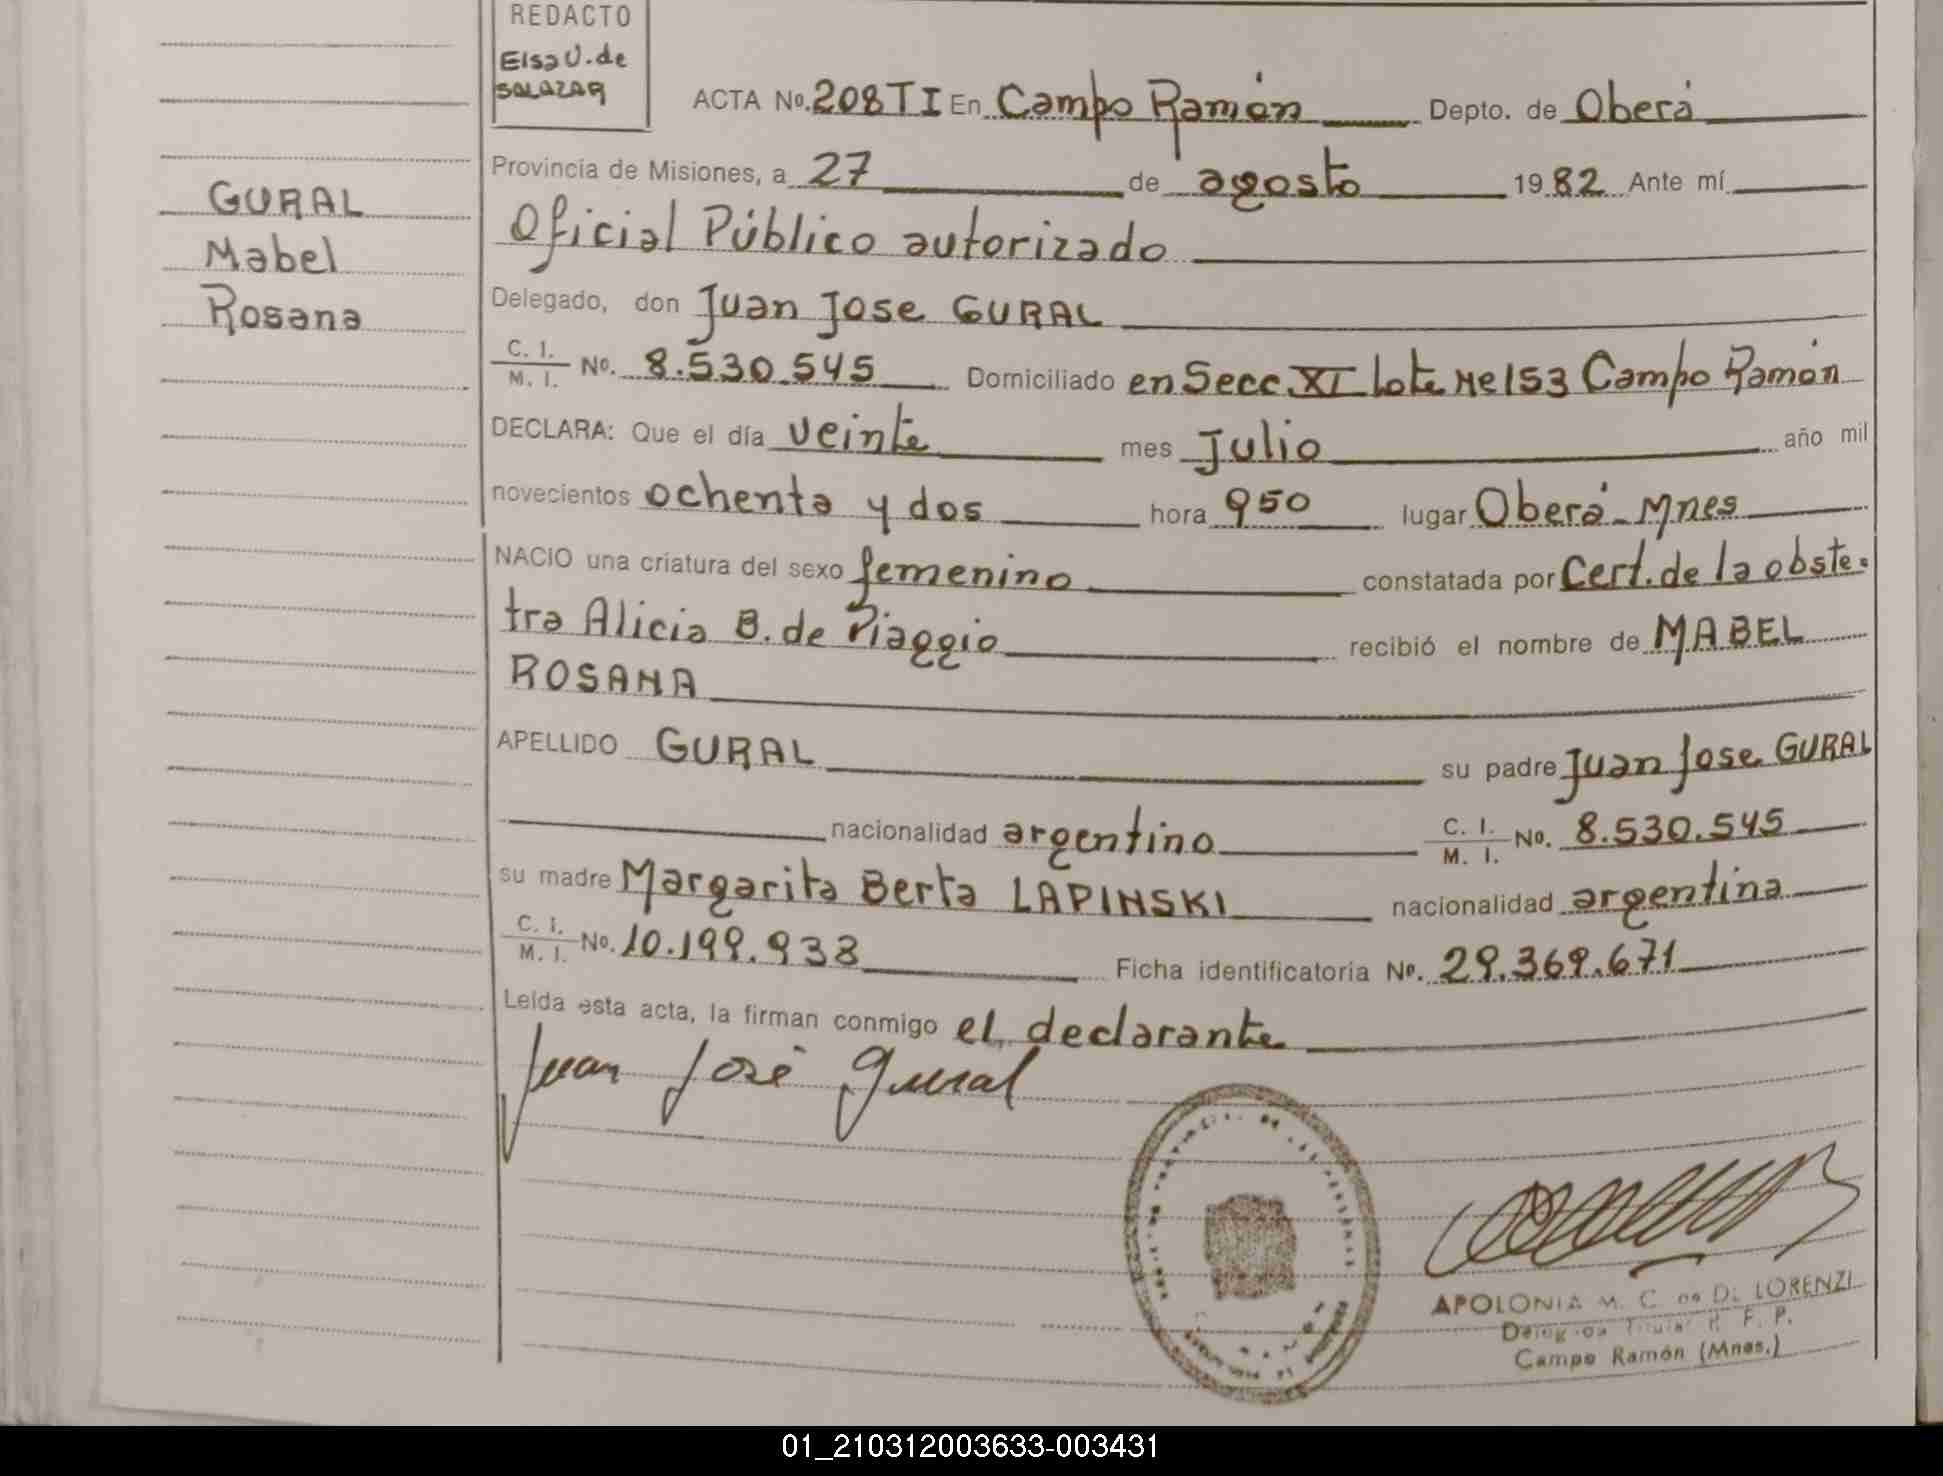 REDACTO
Elsa U. de
SALAZAR
ACTA No. 208 T I En Campo Ramón Depto. de Oberá
Provincia de Misiones, a 27 de agosto 1982 Ante mí
GURAL
Mabel
Rosana
Oficial Público autorizado
Delegado, don Juan Jose GURAL
C. I.
M. I. No. 8.530.545 Domiciliado en Secc XI Lote Nº 153 Campo Ramón
DECLARA: Que el día veinte mes Julio año mil
novecientos ochenta y dos hora 950 lugar Oberá - Mnes
NACIO una criatura del sexo femenino constatada por Cert. de la obste-
tra Alicia B. de Piaggio recibió el nombre de MABEL
ROSANA
APELLIDO GURAL su padre Juan Jose GURAL
nacionalidad argentino C. I.
M. I. No. 8.530.545
su madre Margarita Berta LAPINSKI nacionalidad argentina
C. I.
M. I. No. 10.199.938 Ficha identificatoria No. 29.369.671
Leída esta acta, la firman conmigo el declarante
Juan José Gural
APOLONIA M. C. de DI LORENZI
Delegada Titular R. P.
Campo Ramón (Mnes.)
01_210312003633-003431